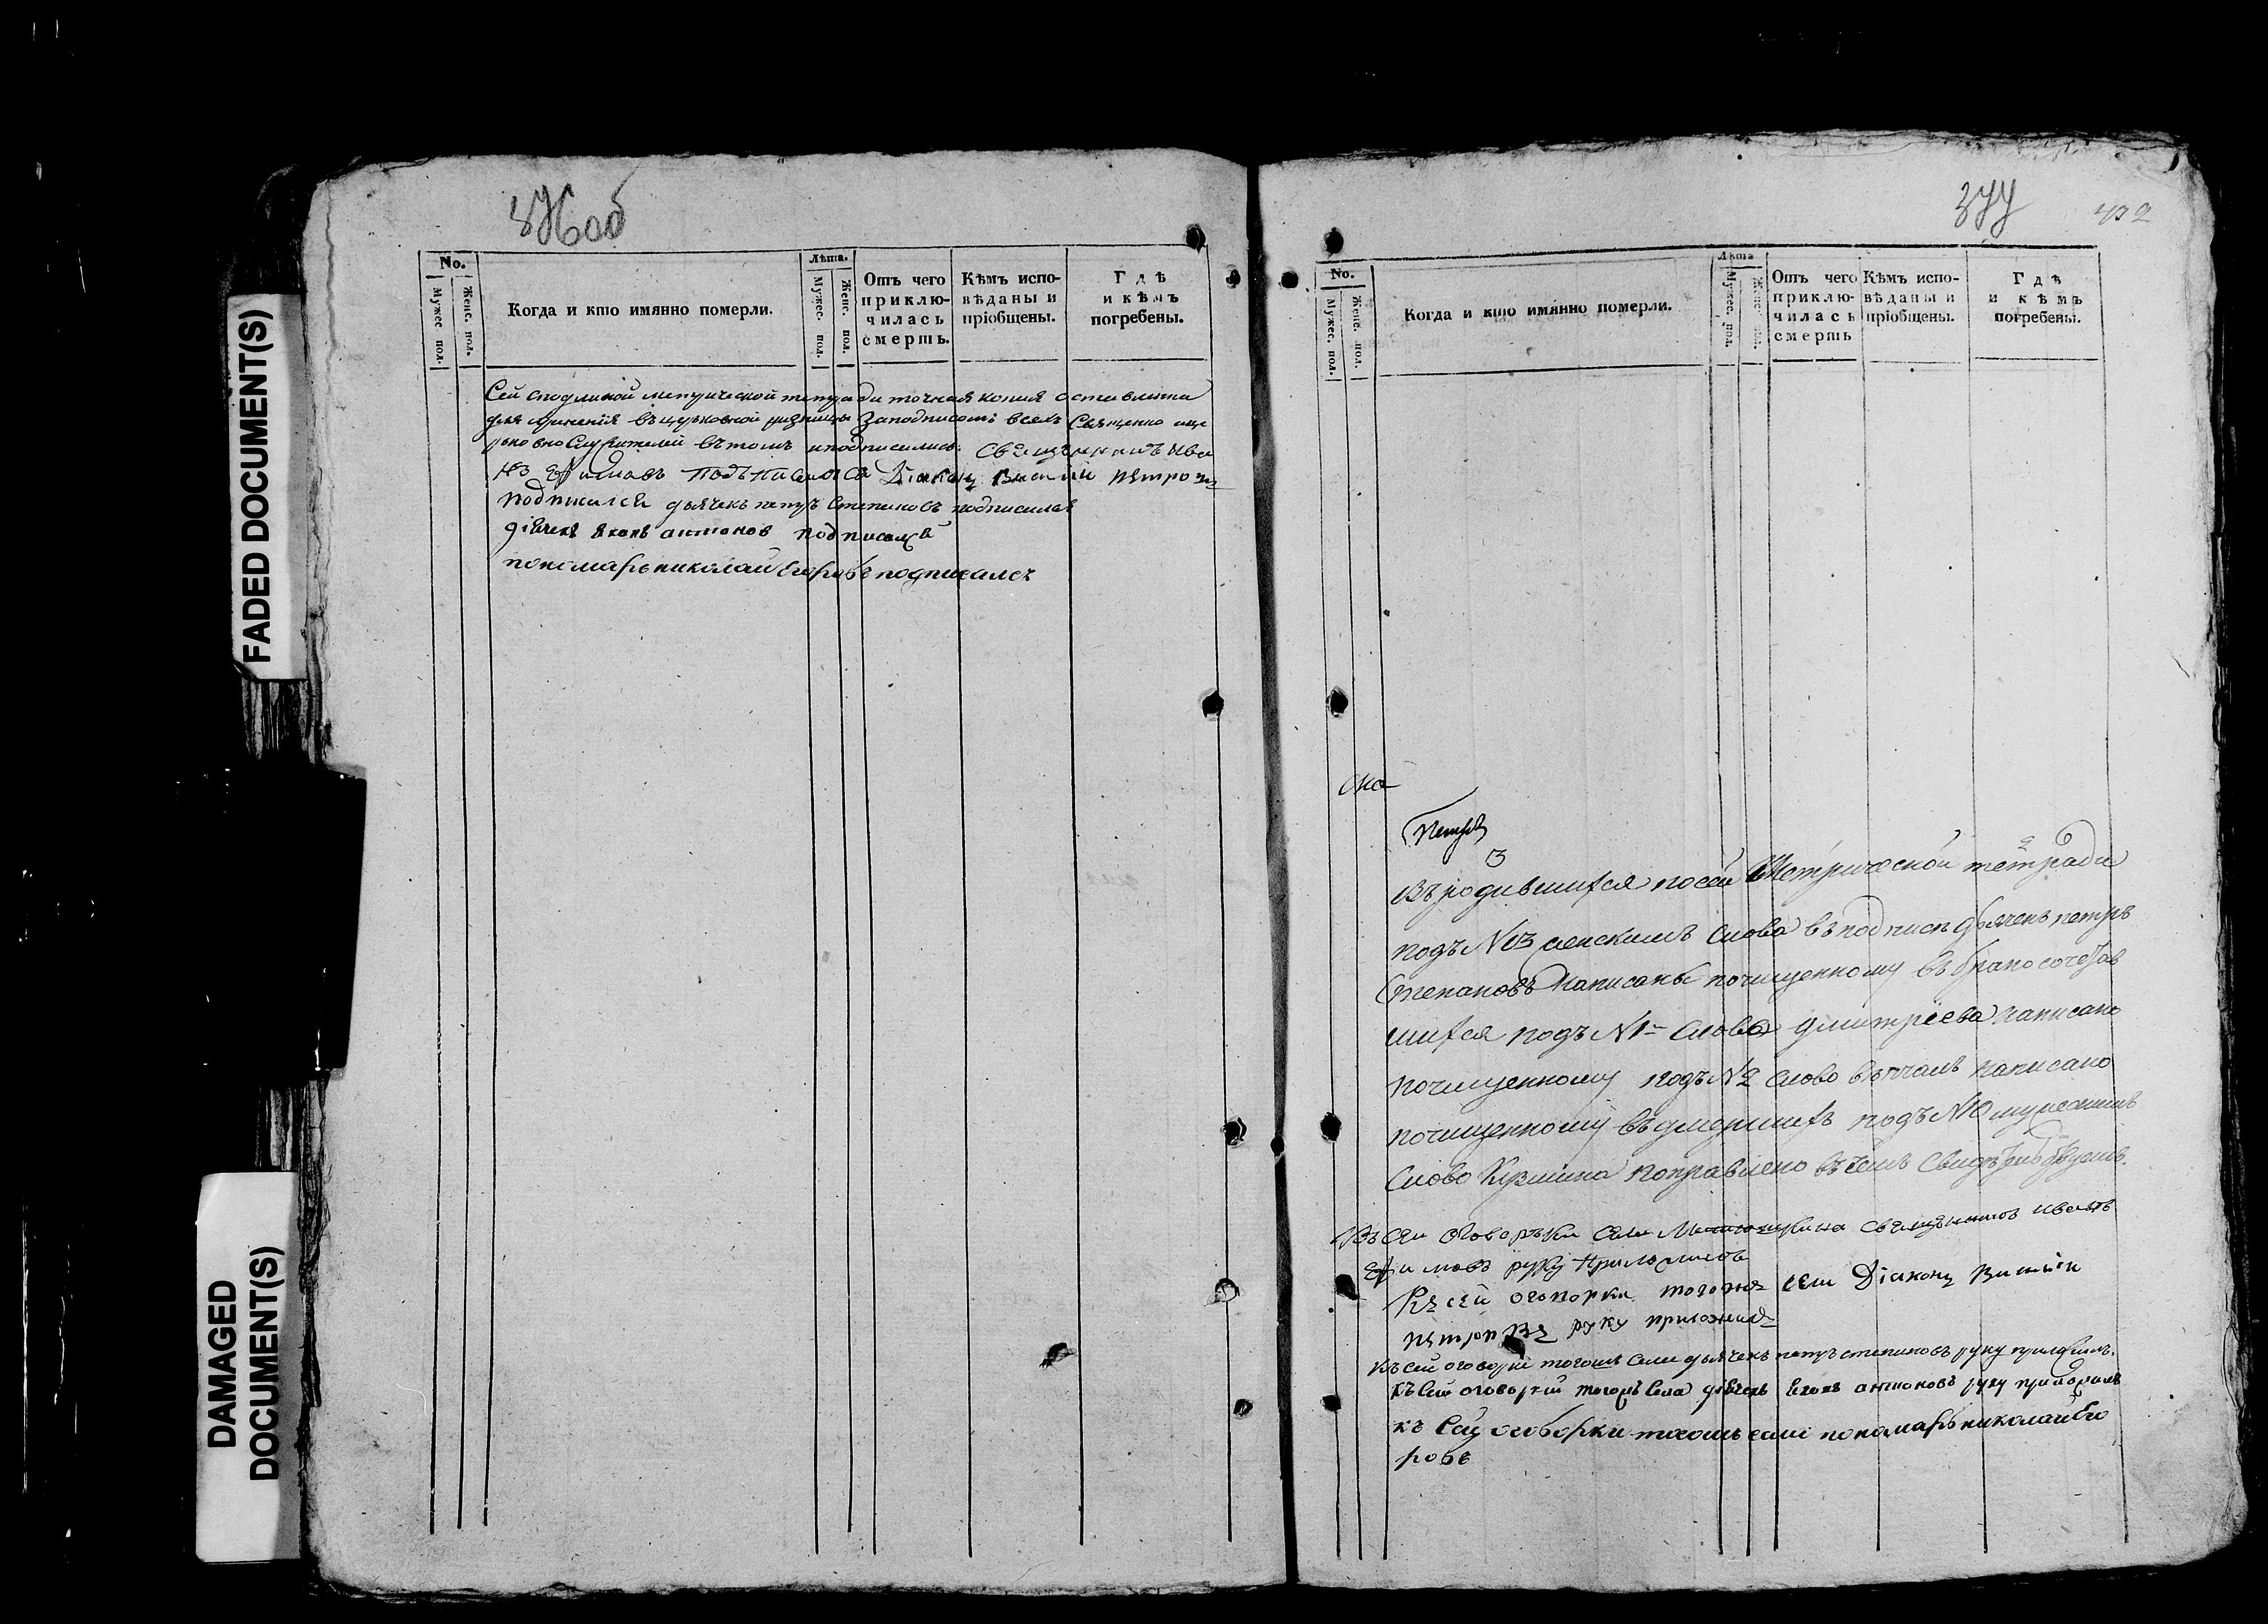 FADED DOCUMENT(S)
DAMAGED
DOCUMENT(S)
376об
No.
Мужес пол.
Женс. пол.
Когда и кто имянно померли.
Лѣта.
Мужес. пол.
Женс. пол.
Отъ чего
приклю-
чилась
смерть.
Кѣмъ испо-
вѣданы и
пріобщены.
Гдѣ
и кѣмъ
погребены.
Сей подлиной метрической тетради точная копия оставлена
для хранения въ церьковной ризнице заподписомъ всехъ Священно и це
рьковно Служителей въ томъ и подписались. Священникъ Ива
нъ Ефимовъ подъписался Діаконъ Василий Петровъ
подписался дьячекъ петръ степановъ подписался
діячекъ антонов подписался
пономарь николай Егоровъ подписалсъ
377
432
No.
Мужес. пол.
Женс пол.
Когда и кто имянно померли.
Лѣта
Мужес. пол.
Женс. пол.
Отъ чего
приклю-
чилась
смерть
Кѣмъ испо-
вѣданы и
пріобщены.
Гдѣ
и кѣмъ
погребены.
Петръ
Въ родившихся по сей Метрической тетради
подъ N 03 женскимъ слова въ подписи дьячекъ петръ
Степановъ написаны почищенному въ бракосочетав
шихся подъ N 1 слово дмитрiева написано
почищенному подъ N 2 слово вѣнчалъ написано
почищенному въ умершихъ подъ N 10 мужескимъ
слово Кузмина поправлено въ чемъ свидѣтельствуемъ.
Къ сей оговорьки села священников иванъ
Ефимовъ руку приложилъ
Къ сей оговорки тогожъ села Діаконъ Василий
петровъ руку приложилъ
Къ сей оговорке тогожъ села дьячекъ петръ степановъ руку приложилъ.
Къ сей оговорки тогожъ села дiячекъ антоновъ руку приложилъ
къ сей оговорки тогожъ села пономарь николай Его
ровъ